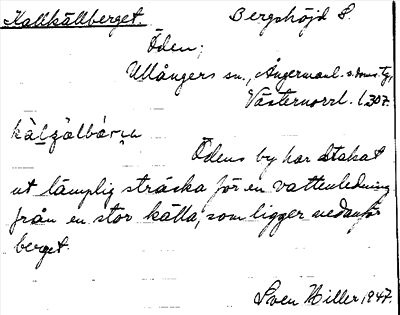 Kallkällberget. Bergshöjd S.
Öden;
Ullångers sn., Ångermanl. s. doms. tg,
Västernorrl. l. 307.
Ödens by har stakat
ut lämplig sträcka för en vattenledning
från en stor källa, som ligger nedanför
berget.
Sven Hiller 1947.